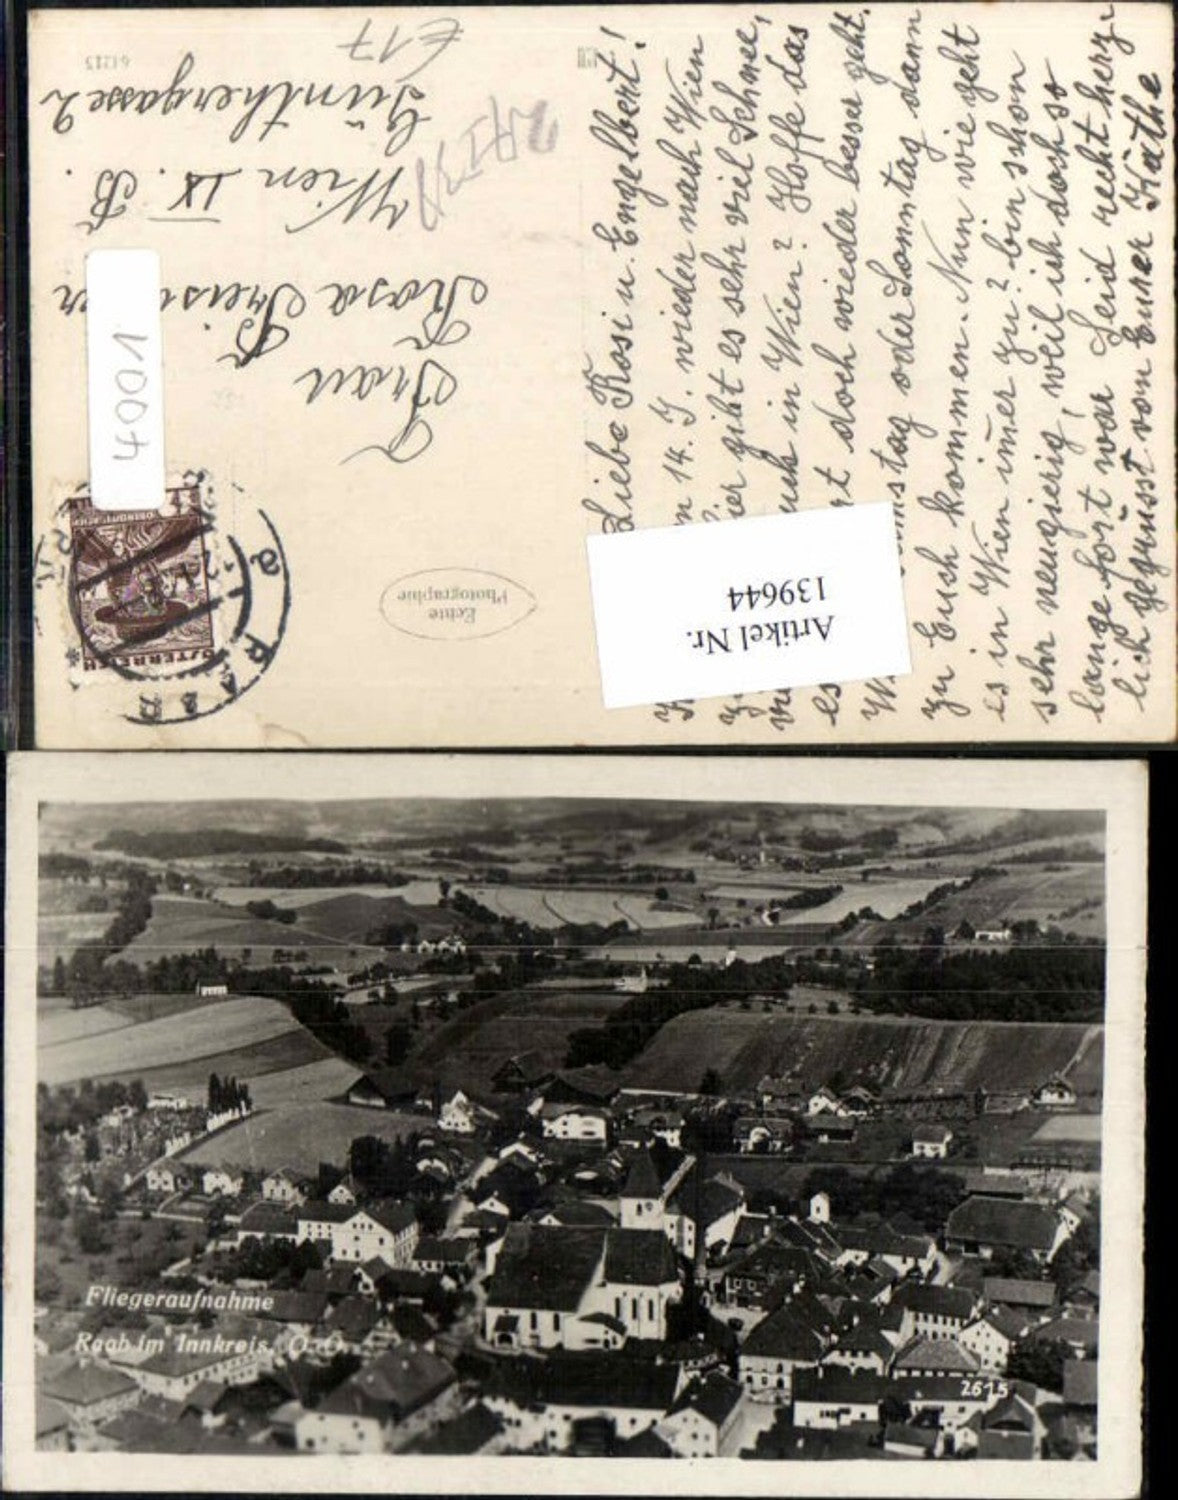 Liebe Rosi u. Engelbert!
14. I. wieder nach Wien
gibt es sehr viel Schnee,
in Wien? Hoffe das
doch wieder besser geht.
oder Sonntag dann
zu Euch kommen. Nun wie geht
es in Wien im̄er zu? bin schon
sehr neugierig, weil ich doch so
lange fort war. Seid recht herz-
lich gegrüsst von Eurer Käthe
Frau
Rosa
Wien IX. B.
Günthergasse 2
£17
61215
4001
Echte
Photographie
ÖSTERREICH
RAAB
Artikel Nr.
139644
Fliegeraufnahme
Raab im Innkreis, O.Ö.
2615